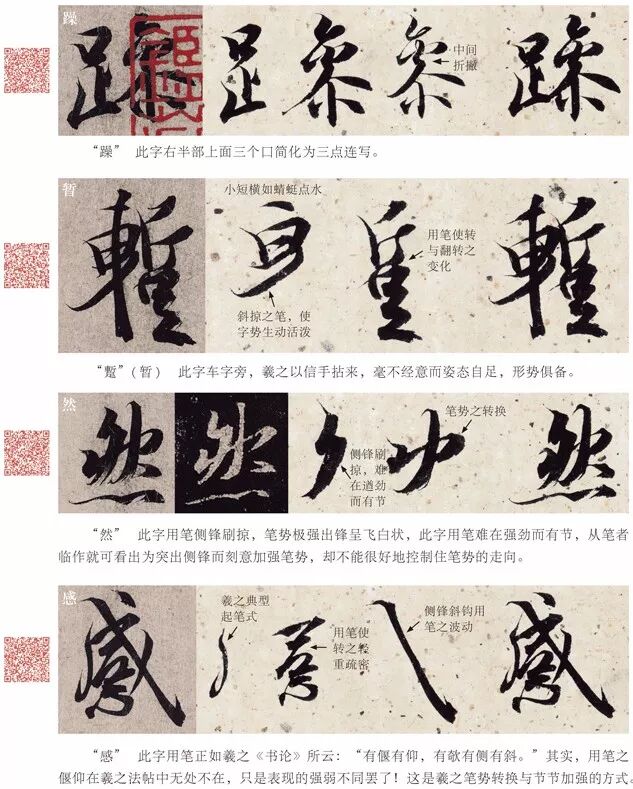 躁
中间
折撇
“躁” 此字右半部上面三个口简化为三点连写。
暂
小短横如蜻蜓点水
用笔使转
与翻转之
变化
斜掠之笔，使
字势生动活泼
“蹔”(暂) 此字车字旁，羲之以信手拈来，毫不经意而姿态自足，形势俱备。
然
笔势之转换
侧锋刷
掠，难
在遒劲
而有节
“然” 此字用笔侧锋刷掠，笔势极强出锋呈飞白状，此字用笔难在强劲而有节，从笔者
临作就可看出为突出侧锋而刻意加强笔势，却不能很好地控制住笔势的走向。
感
羲之典型
起笔式
用笔使
转之轻
重疏密
侧锋斜钩用
笔之波动
“感” 此字用笔正如羲之《书论》所云：“有偃有仰，有欹有侧有斜。”其实，用笔之
偃仰在羲之法帖中无处不在，只是表现的强弱不同罢了！这是羲之笔势转换与节节加强的方式。